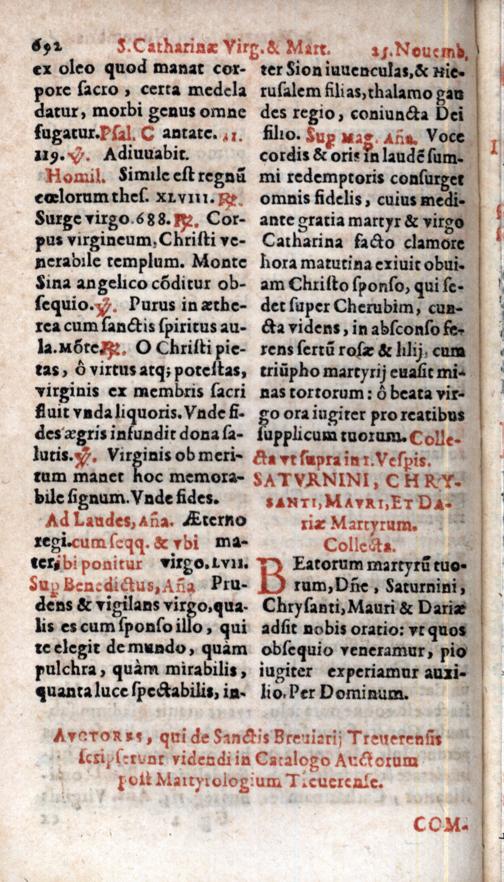 692 S. Catharinæ Virg. & Mart. 25. Nouemb.
ex oleo quod manat cor-
pore sacro, certa medela
datur, morbi genus omne
fugatur. Psal. C antate. 11.
119. ℣. Adiuuabit.
Homil. Simile est regnũ
cœlorum thes. XLVIII. ℟.
Surge virgo. 688. ℟. Cor-
pus virgineum, Christi ve-
nerabile templum. Monte
Sina angelico cõditur ob-
sequio. ℣. Purus in æthe-
rea cum sanctis spiritus au-
la. Mõte. ℟. O Christi pie-
tas, ô virtus atq; potestas,
virginis ex membris sacri
fluit vnda liquoris. Vnde fi-
des ægris infundit dona sa-
lutis. ℣. Virginis ob meri-
tum manet hoc memora-
bile signum. Vnde fides.
Ad Laudes, Aña. Æterno
regi. cum seqq. & vbi ma-
ter, ibi ponitur virgo. LVII.
Sup Benedictus, Aña Pru-
dens & vigilans virgo, qua-
lis es cum sponso illo, qui
te elegit de mundo, quàm
pulchra, quàm mirabilis,
quanta luce spectabilis, in-
ter Sion iuuenculas, & Hie-
rusalem filias, thalamo gau
des regio, coniuncta Dei
filio. Sup Mag. Aña. Voce
cordis & oris in laudẽ sum-
mi redemptoris consurget
omnis fidelis, cuius medi-
ante gratia martyr & virgo
Catharina facto clamore
hora matutina exiuit obui-
am Christo sponso, qui se-
det super Cherubim, cun-
cta videns, in absconso fe-
rens sertũ rosæ & lilij, cum
triũpho martyrij euasit mi-
nas tortorum: ô beata vir-
go ora iugiter pro reatibus
supplicum tuorum. Colle-
cta vt supra in 1. Vespis.
SATVRNINI, CHRY-
SANTI, MAVRI, ET DA-
riæ Martyrum.
Collecta.
BEatorum martyrũ tuo-
rum, Dñe, Saturnini,
Chrysanti, Mauri & Dariæ
adsit nobis oratio: vt quos
obsequio veneramur, pio
iugiter experiamur auxi-
lio. Per Dominum.
AVCTORES, qui de Sanctis Breuiarij Treuerensis
scripserunt videndi in Catalogo Auctorum
post Martyrologium Treuerense.
COM-